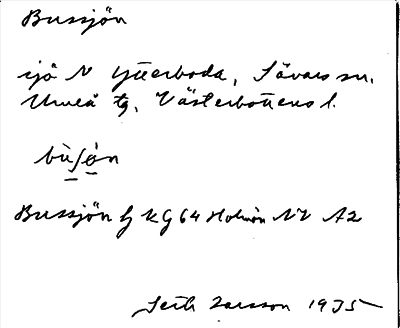 Bussjön
sjö N Ytterboda, Sävars sn.
Umeå tg, Västerbottens l.
bu̇̀ʃȯ́n
Bussjön hf KG 64 Holmön NV A2
Seth Larsson 1935